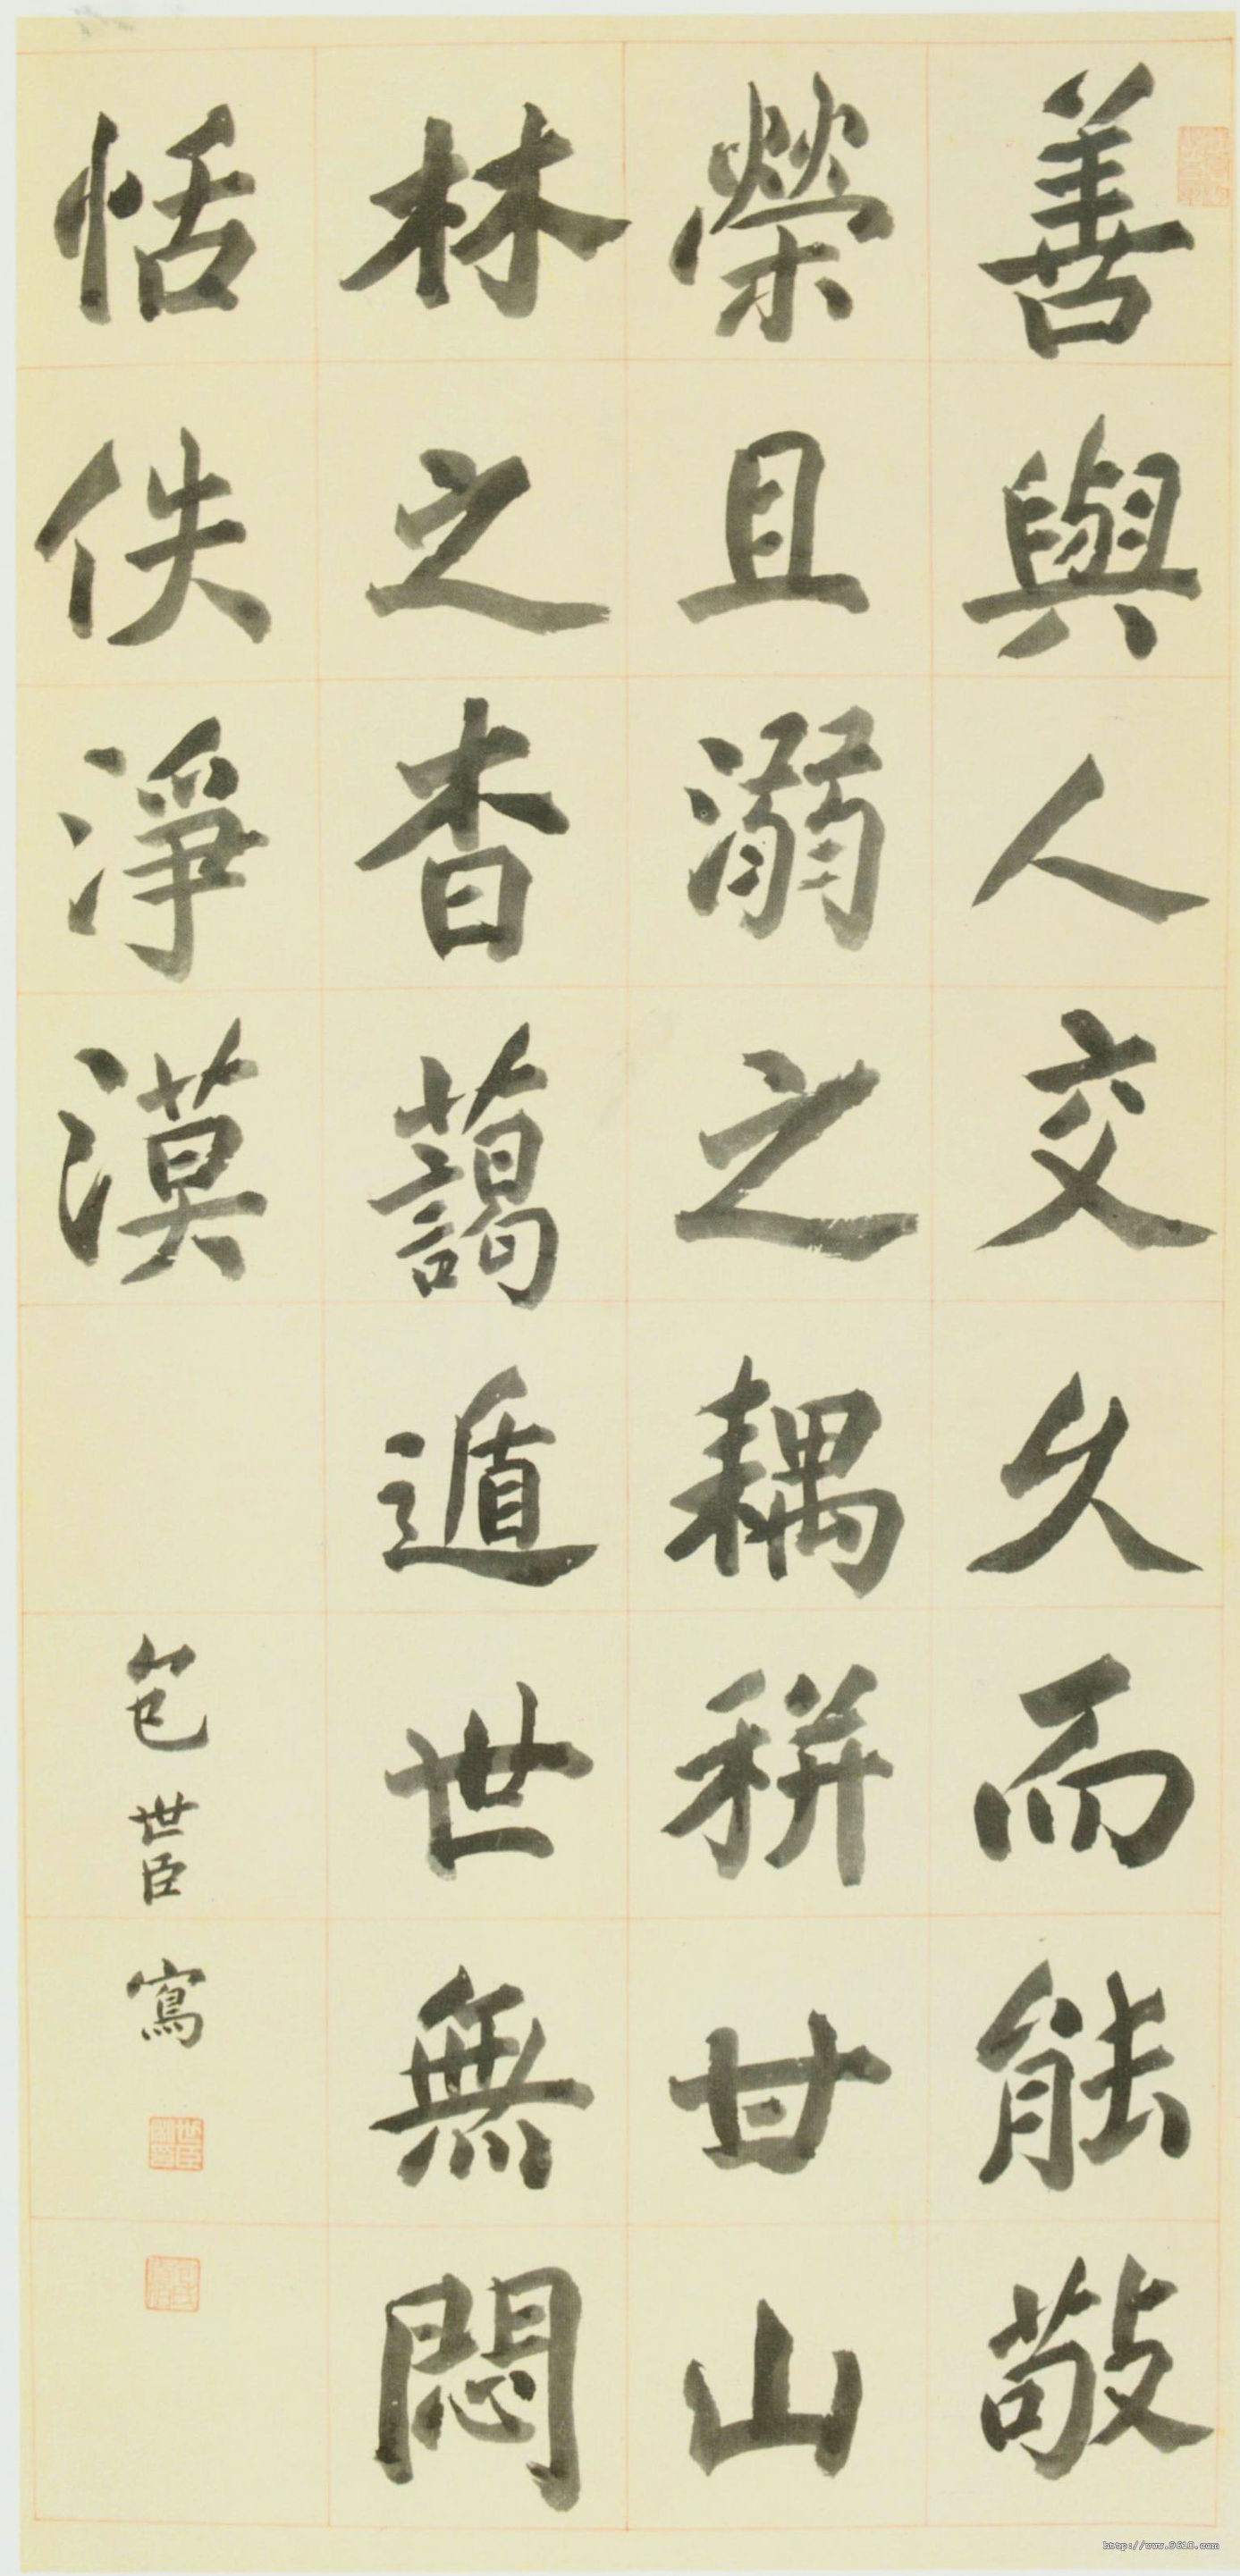 善與人交久而能敬
榮且溺之耦耕甘山
林之杳藹遁世無悶
恬佚淨漠
包世臣寫
http://www.9610.com